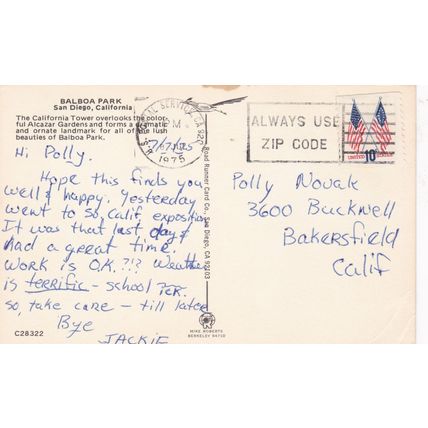 BALBOA PARK
San Diego, California
The California Tower overlooks the color-
ful Alcazar Gardens and forms a dramatic
and ornate landmark for all of the lush
beauties of Balboa Park.
Hi Polly.
Hope this finds you
well & happy. Yesterday
went to so. Calif. exposition
It was that last day &
had a great time.
Work is O.K.?!? Weather
is terrific - school
so, take care - till later
Bye
JACKIE
C28322
PM
1975
ALWAYS USE
ZIP CODE
10¢
Road Runner Card Co. San Diego, CA 92103
MIKE ROBERTS
BERKELEY 94710
Polly Novak
3600 Bucknell
Bakersfield
Calif